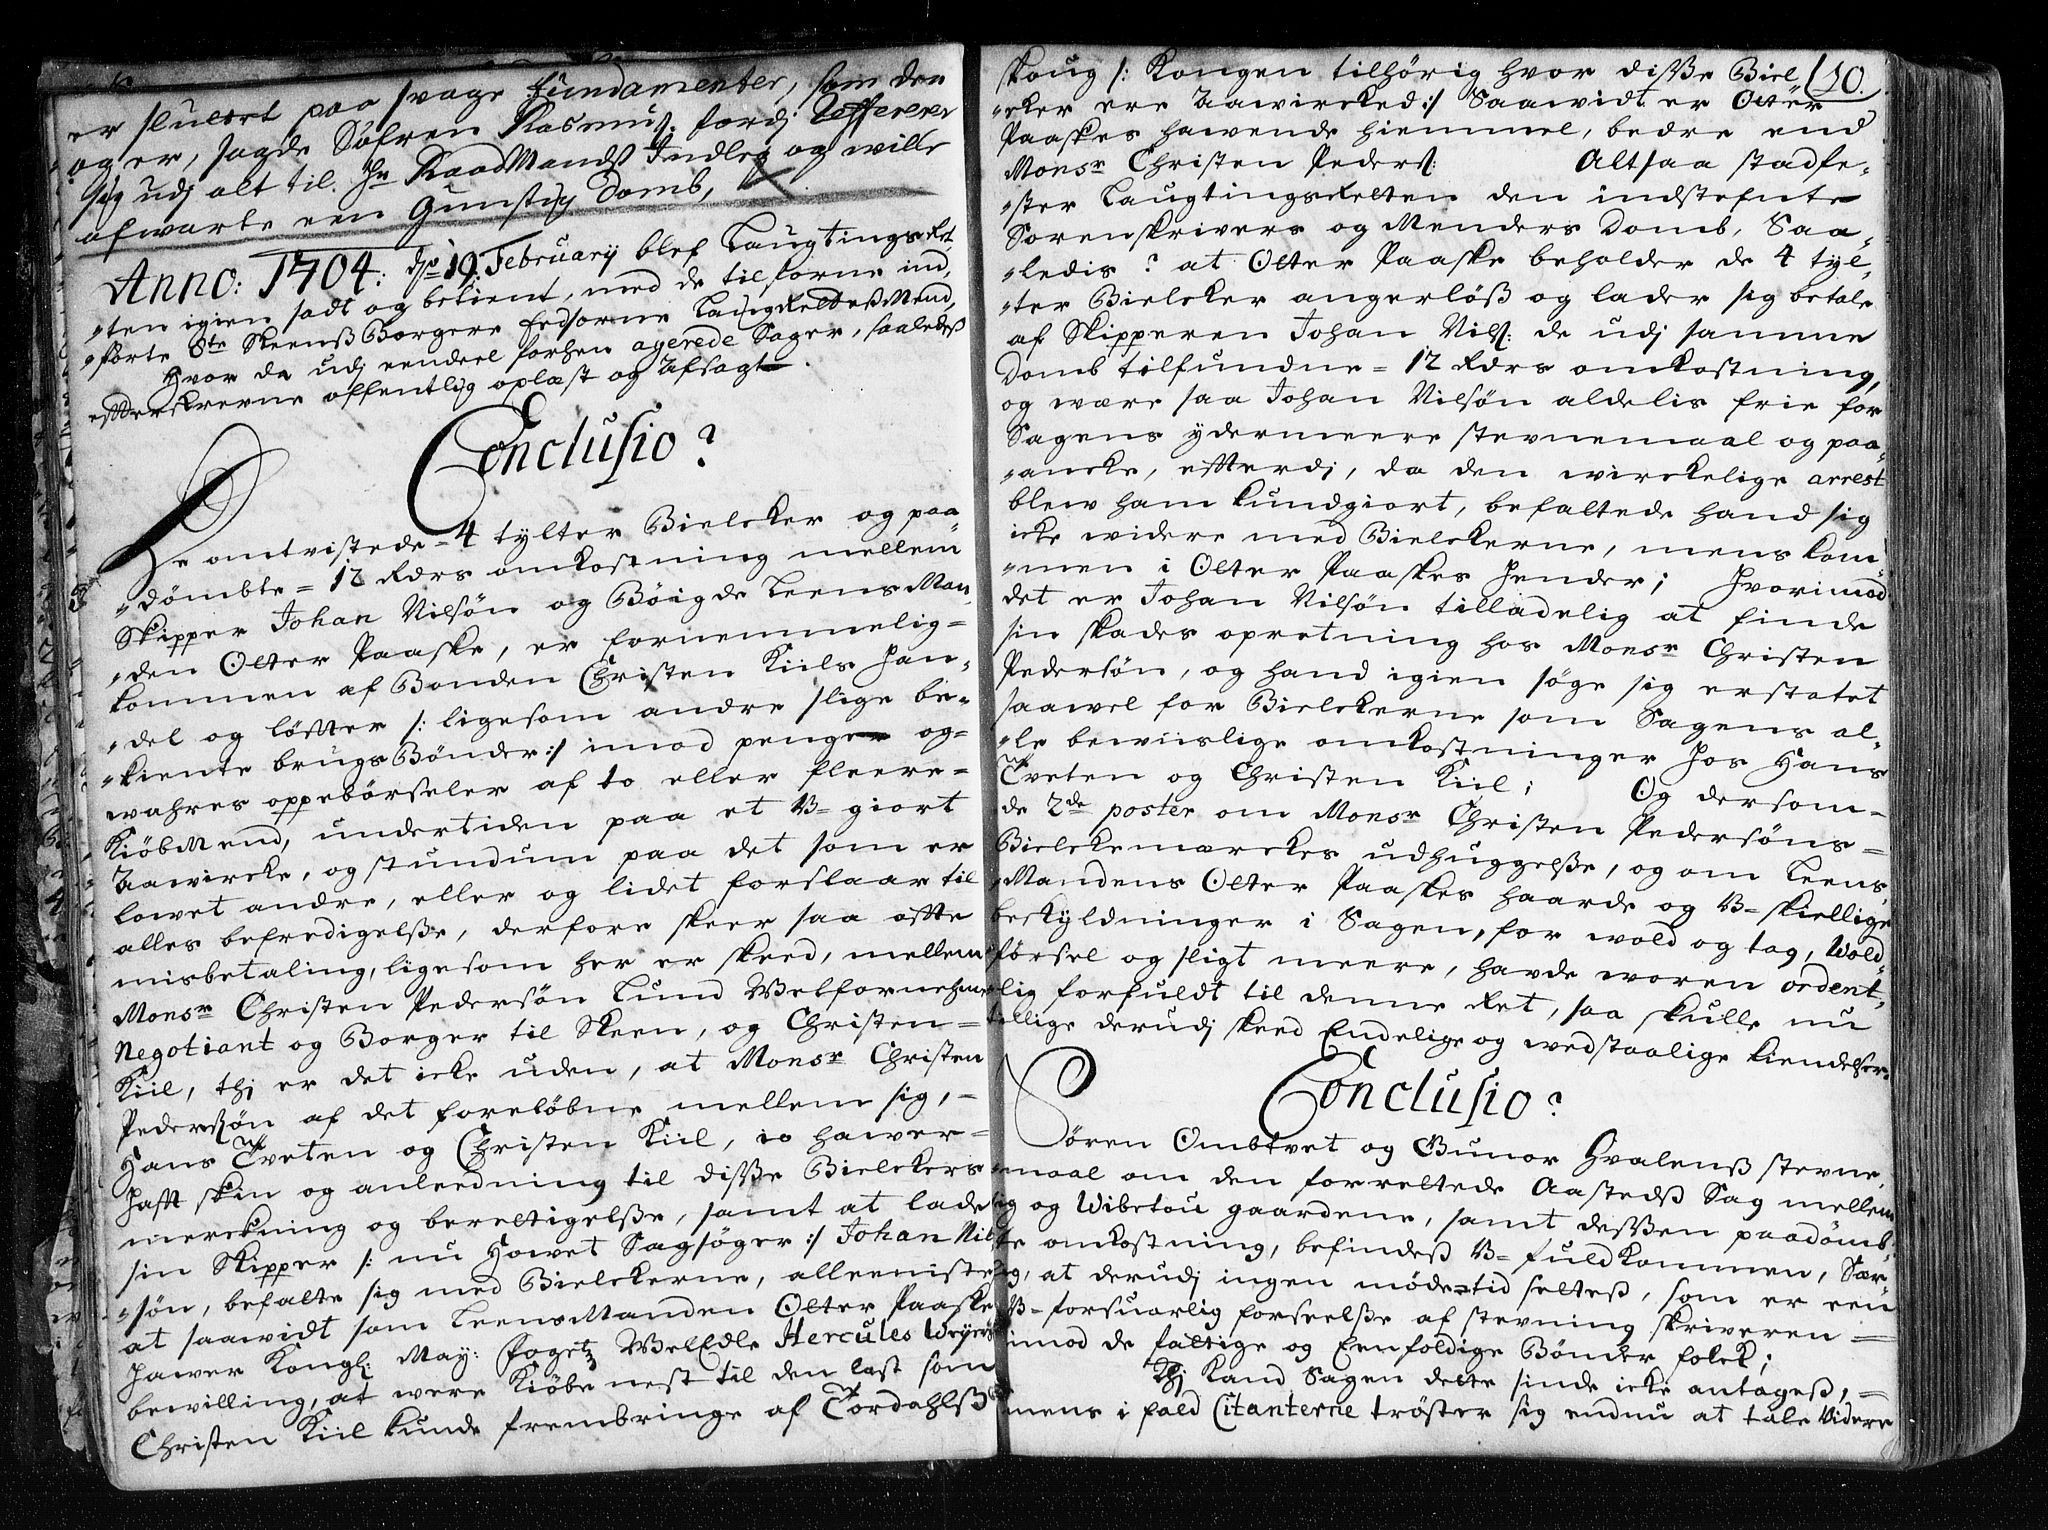 er sluttet paa svage fundamenter, som den
og er, sagde Søfren Rasmus: fordj Refferered
sig udj alt til Hr Raad Mandß Indleg og wille
afwarte een Gunstig Domb,
Anno: 1704: dn 19. February blef Laugtings Ret,
"ten igien sadt og betient, med de tilforne ind,
"førte 8te Skeenß Borgere Edsorne Laug Retteß Mend,
Hvor da udj eendeel forhen agerede Sager, saaledeß
effterskrefne offentlig oplæst og Afsagt.
Conclusio?
De omtvistede = 4 tylter Bielcker og paa
"dømbte = 12 Rdrs omkostning mellem
Skipper Johan Nilsøn og Bøigde Leens Man,
"den Olter Paaske, er fornemmelig =
kommen af Bonden Christen Kiils han,
"del og løffter /: ligesom andre slige be,
"kiente brugs Bønder :/ imod penge og =
wahres oppebørseler af to eller fleere =
Kiøb Mend, undertiden paa et V= giort
Aawircke, og stundum paa det som er
lowet andre, eller og lidet forslaar til
alles befredigelße, derfore skeer saa offte
misbetaling, ligesom her er skeed, mellem
Monsr Christen Pedersøn Lund Welfornehme
Negotiant og Borger til Skeen, og Christen =
Kiil, thj er det icke uden, at Monsr Christen
Pedersøn af det foreløbne mellem sig, =
Hans Tveten og Christen Kiil, io hawer =
hafft skin og anleedning til disße Bielckers
merckning og berettigelße, samt at lade
sin Skipper /: nu Howet Sagsøger :/ Johan Nil,
"søn, befatte sig med Bielckerne, alleeniste
at saawidt som Leens Manden Olter Paaske
hawer Kongl: May: Fogetz WelEdle Hercules Weyers
bewilling, at were Kiøbe nest til den last som
Christen Kiil kunde frembringe af Tordahlß
10.
skoug /: Kongen tilhørig hvor disße Biel
"cker ere Aawircked :/ Saawidt er Olter
Paaskes hawende hiemmel, bedre end
Monsr Christen Peders: Altsaa stadfe,
"ster Laugtings Retten den indstefnte
Sorenskrivers og Menders Domb, Saa,
"ledis? at Olter Paaske beholder de 4 tyl,
"ter Bielcker angerløß og lader sig betale
af Skipperen Johan Nils: de udj samme
Domb tilfundne = 12 Rdrs omkostning,
og wære saa Johan Nilsøn aldelis frie for
Sagens ydermeere stevnemaal og paa,
"ancke, efterdj, da den wirckelige arrest
blew ham kundgiort, befattede hand sig
icke widere med Bielckerne, mens kom,
"men i Olter Paaskes Hender; Hvorimod
det er Johan Nilsøn tilladelig at finde
sin skades opretning hos Monsr Christen
Pedersøn, og hand igien søge sig erstatet
saawel for Bielckerne som Sagens al,
"le bewiislige omkostninger hos Hans
Tveten og Christen Kiil; Og dersom =
de 2de poster om Monsr Christen Pedersøns =
Bielckemerckes udhuggelße, og om Leens,
"Mandens Olter Paaskes haarde og V= skiellige
beskyldninger i Sagen, for wold og tag, Wold,
førsel og sligt meere, havde woren ordent,
"lig forfuldt til denne Ret, saa skulle nu
tillige derudj skeed Endelige og wedstaalige kiendelser.
Conclusio?
Søren Ombtvet og Gunor Hvalenß stevne,
"maal om den forrettede Aastedß Sag mellem
sig og Wibetou gaardene, samt desßen paadømb,
"te omkostning, befindeß V= fuldkommen, Sær,
"ig, at derudj ingen mødetid setteß, som er een
V= forsuarlig forseelße af stevning skriveren =
imod de fattige og Eenfoldige Bønder folck;
Thj kand Sagen dette sinde icke antageß, =
mens i fald Citanterne trøster sig endnu at tale Videre